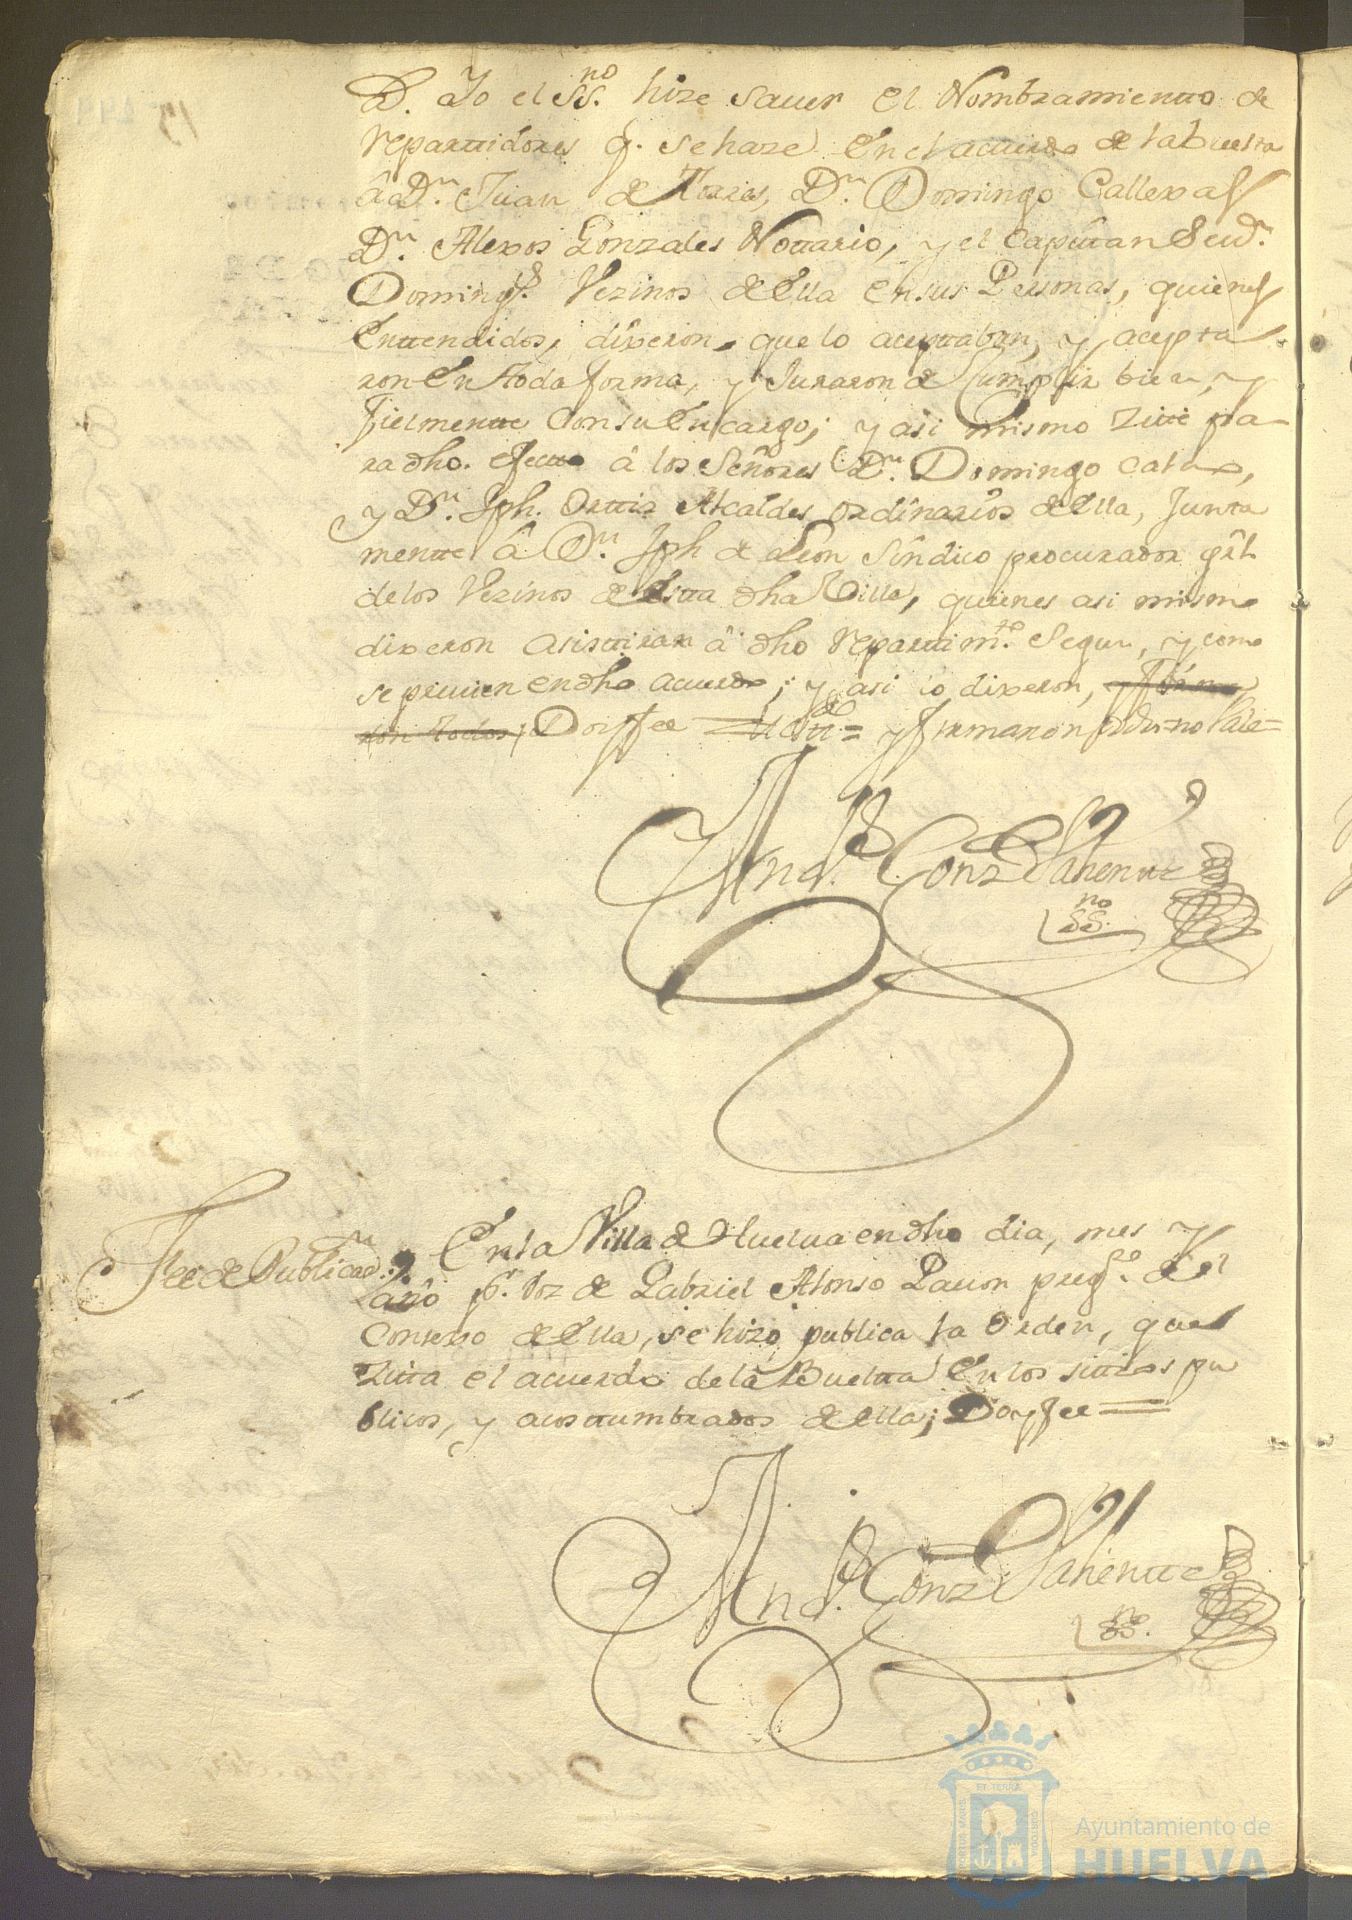 Yo el SS.no hize sauer el Nombramientto de
reparttidores q. se haze en el acuerdo de la buelta
â Dn. Juan de Dn. Domingo Callexas
Dn. Alexos Gonzales Nottario, y el Capittan
Doming.s Vezinos de ella en sus Personas, quienes
enttendidos, dixeron que lo acepttaban, y acepta
ron en ttoda forma, y Juraron de Cumplir bien, y
fielmentte con su encargo; y asi mismo zitté pa
ra dho. efectto â los Señores Dn. Domingo
y Dn. Jph. Orttiz Alcaldes ordinarios de ella, Junta
mentte â Dn. Jph de Leon Sindico procurador grâl
de los Vezinos de estta dha Villa, quienes asi mismo
dixeron asisttiran â dho reparttim.to Segun, y como
se preuien en dho acuerdo; y asi lo dixeron, y firma
ron todos, Doy fee = y firmaron no Vale =
And.s Gonz Valientte
SS.no
Fee de Publicad.n
En la Villa de Huelua en dho dia, mes y
año p.r voz de Gabriel Alonso Pauon preg.o de el
Consexo de ella, se hizo publica la Orden, que
zitta el acuerdo de la Bueltta en los sittios pu
blicos, y acosttumbrados de ella; Doy fee =
And.s Gonz Valientte
SS.no
Ayuntamiento de
HUELVA